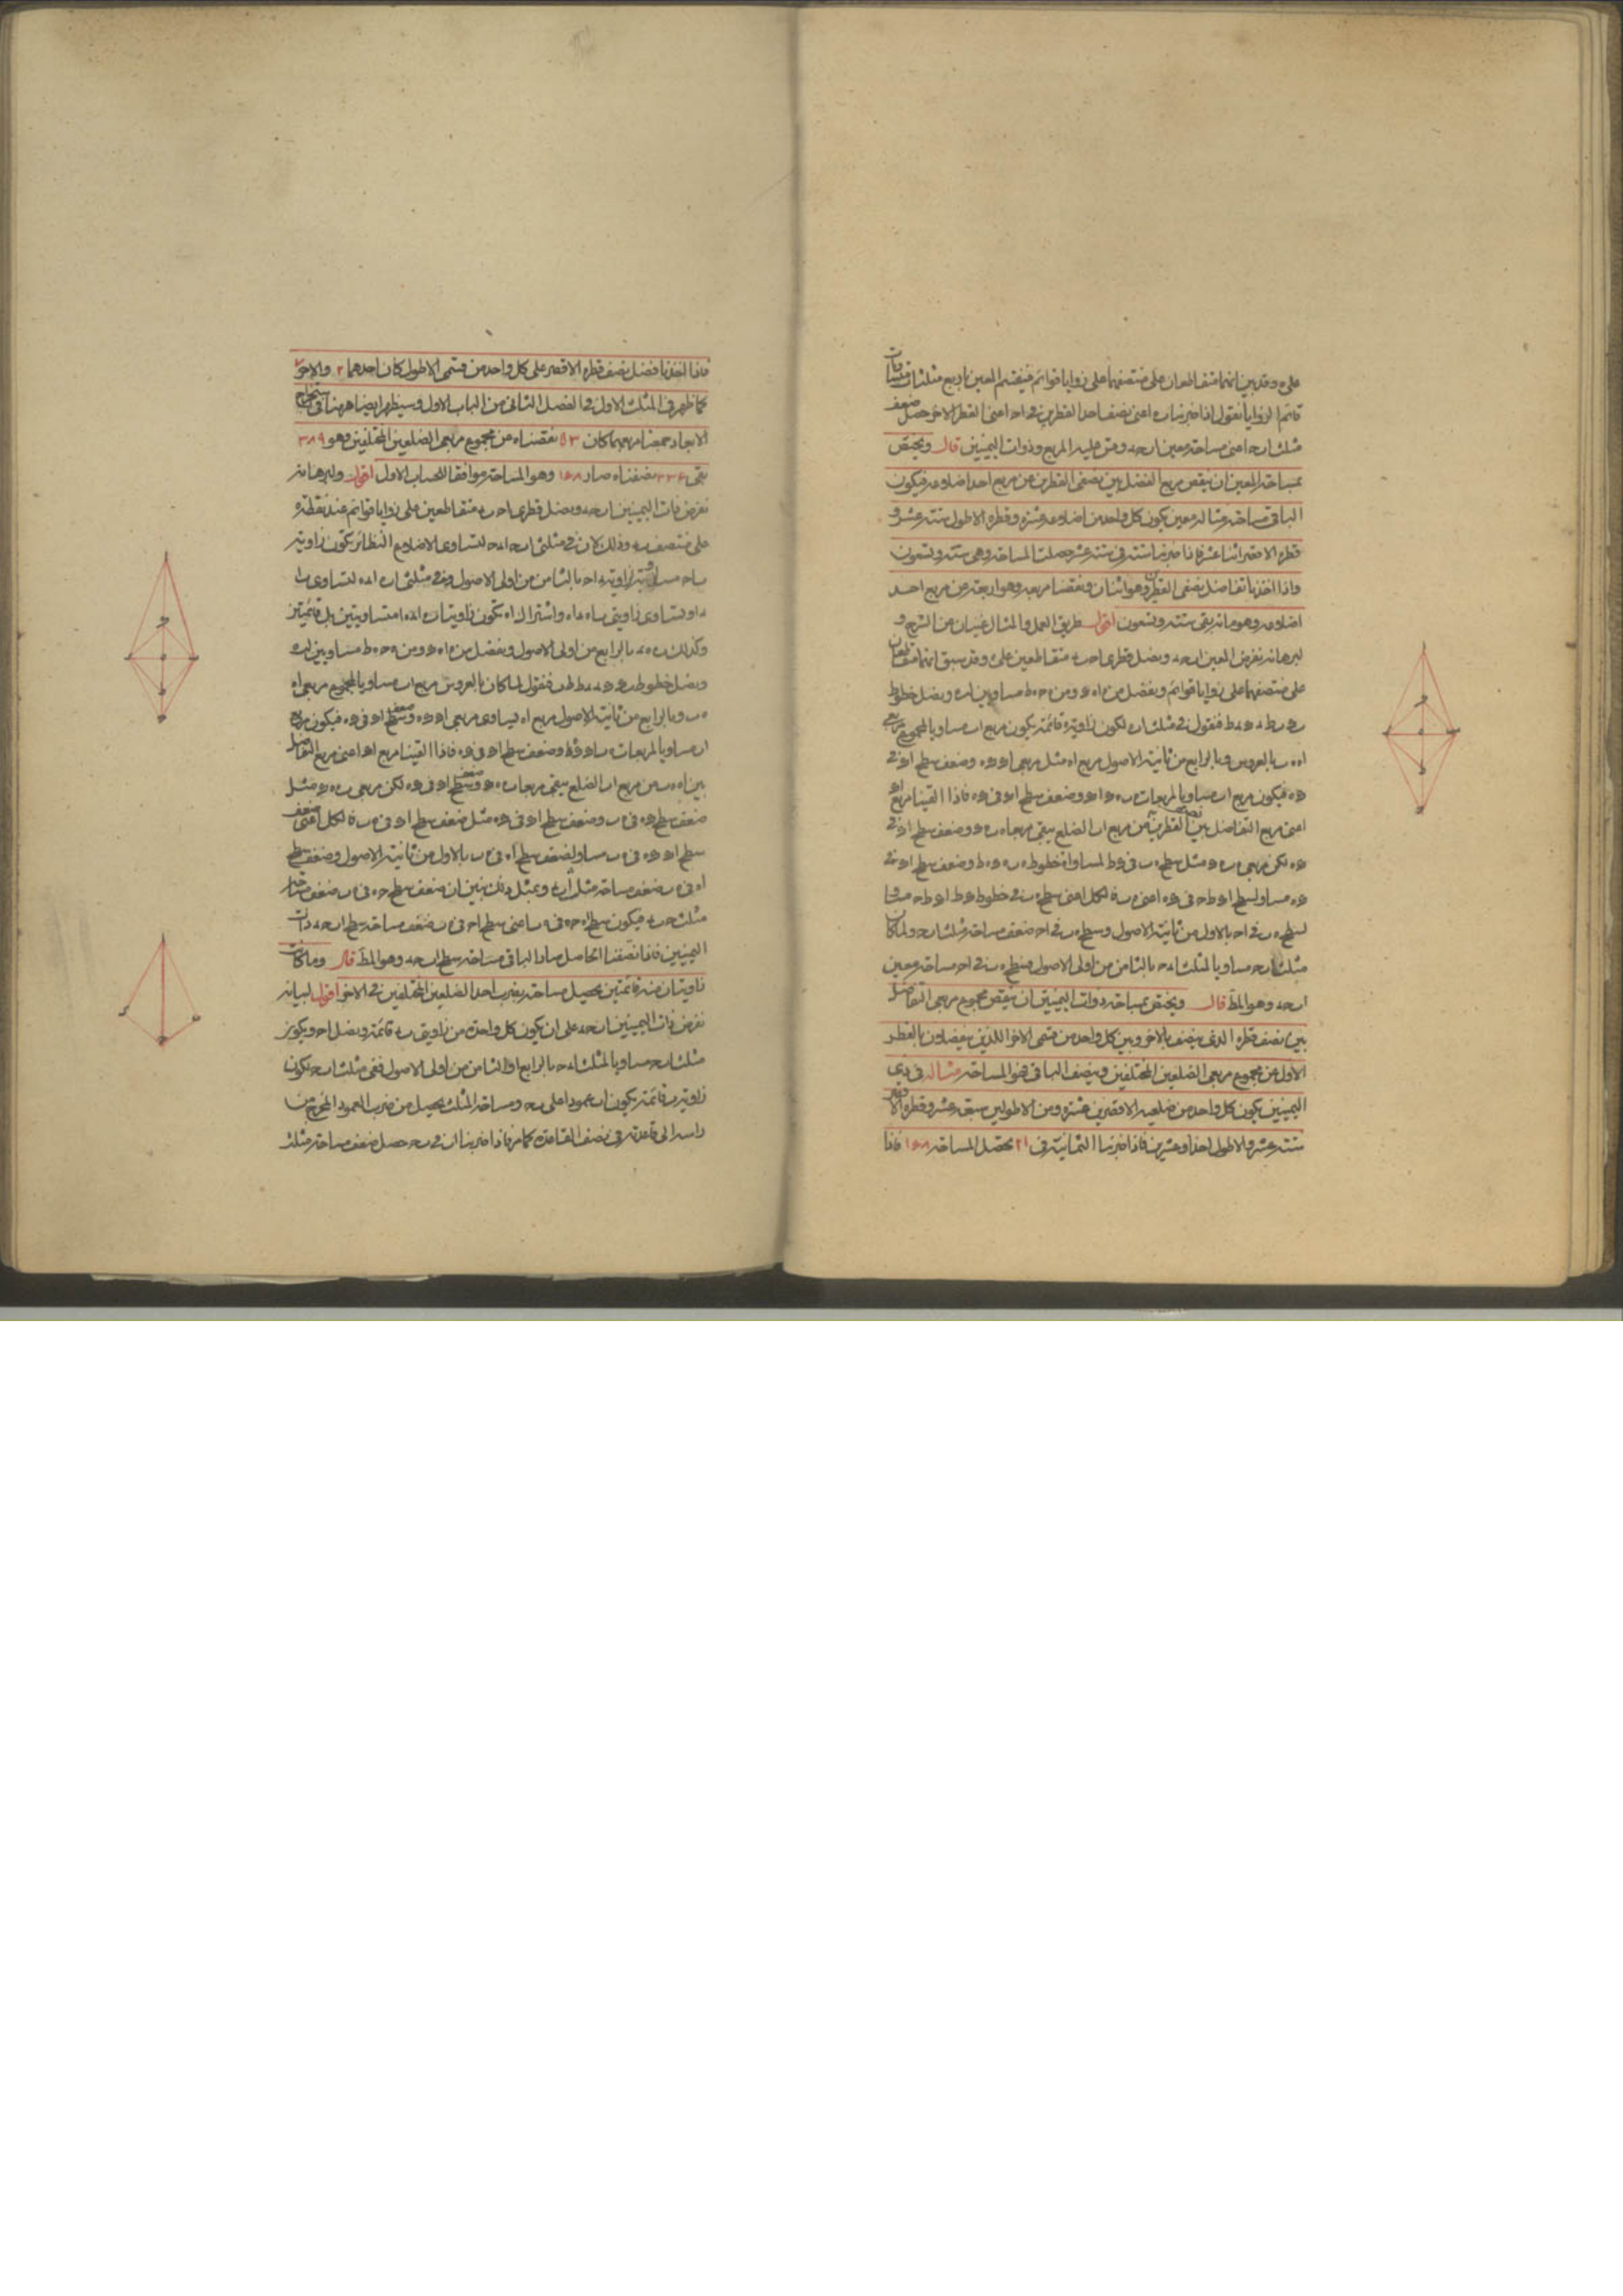 على ه وقد بين انهما متقاطعان على منتصفهما على زوايا قوائم فينقسم المعين باربع مثلثات متساويات
قائم الزوايا نقول اذا ضربنا ب ه اعنى نصف احد القطرين فى ا ح اعنى القطر الاخر حصل ضعف
مثلث ا ب ح اعنى مساحة معين ا ب ح د وقس عليه المربع وذوات اليمينين قال ويختص
بمساحة المعين ان ينقص مربع الفضل بين نصفى القطرين من مربع احد اضلاعه فيكون
الباقى مساحته مثاله معين يكون كل واحد من اضلاعه عشرة وقطره الاطول ستة عشر و
قطره الاقصر اثنا عشر فاذا ضربنا ستة فى ستة عشر حصلت المساحة وهى ستة وتسعون
واذا اخذنا تفاضل نصفى القطرين وهو اثنان ونقصنا مربعه وهو اربعة من مربع احد
اضلاعه وهو مائة بقى ستة وتسعون اقول طريق العمل والمثال غنيان عن الشرح و
لبرهانه نفرض المعين ا ب ح د ونصل قطرى ا ح ب د متقاطعين على ه وقد سبق انهما متقاطعان
على منتصفهما على زوايا قوائم ونفصل من ا ه ه و ومن ه ح ه ط مساويين ل ب ه ونصل خطوط
فنقول فى مثلث ا ب ه لكون زاوية ه قائمة يكون مربع ا ب مساويا لمجموع مربعى
ا ه ه ب بالعروس وبالرابع من ثانية الاصول مربع ا ه مثل مربعى ا و و ه وضعف سطح ا و فى
و ه فيكون مربع ا ب مساويا لمربعات ب ه ا و و ه وضعف سطح ا و فى و ه فاذا القينا مربع ا و
اعنى مربع التفاضل بين نصفى القطرين من مربع ا ب الضلع يبقى مربعا ب ه ه و وضعف سطح ا و فى
و ه لكن مربعى ب ه ه و مثل سطح ه ب فى و ط لمساواة خطوط ب ه ه و ه ط وضعف سطح ا و فى
و ه مساو لسطح ا و ط ح فى و ه اعنى ه ب فالكل اعنى سطح ه ب فى خطوط و ط ا و ط ح مساو
لسطح ه ب فى ا ح بالاول من ثانية الاصول وسطح ه ب فى ا ح ضعف مساحة مثلث ا ب ح ولما كان
مثلث ا ب ح مساويا لمثلث ا د ح بالثامن من اولى الاصول فسطح ه ب فى ا ح مساحة معين
ا ب ح د وهو المط قال ويختص بمساحة ذوات اليمينين ان ينقص مجموع مربعى التفاضل
بين نصف قطره الذى ينصف بالاخر وبين كل واحد من قسمى الاخر اللذين ينفصلان بالقطر
الاول من مجموع مربعى الضلعين المختلفين وينصف الباقى فهو المساحة مثاله فى ذى
اليمينين يكون كل واحد من ضلعيه الاقصرين عشرة ومن الاطولين سبعة عشر وقطره الاقصر
ستة عشر والاطول احدا وعشرين فاذا ضربنا الثمانية فى ٢١ يحصل المساحة ١٦٨ فاذا
فاذا اخذنا فضل نصف قطره الاقصر على كل واحد من قسمى الاطول كان احدهما ٢ والاخر ٧
كما ظهر فى المثلث الاول فى الفصل الثانى من الباب الاول وسيظهر ايضا ههنا فى استخراج
الابعاد جمعنا مربعيهما كان ٥٣ نقصناه من مجموع مربعى الضلعين المختلفين وهو ٣٨٩
بقى ٣٣٦ نصفناه صار ١٦٨ وهو المساحة موافقا للحساب الاول اقول ولبرهانه
نفرض ذات اليمينين ا ب ح د ونصل قطرى ا ح ب د متقاطعين على زوايا قوائم عند نقطة ه
على منتصف ب د وذلك لان فى مثلثى ا ب ح ا د ح لتساوى الاضلاع النظائر تكون زاوية
ب ا ح مساوية لزاوية د ا ح بالثامن من اولى الاصول وفى مثلثى ا ب ه ا د ه لتساوى ب ا
د ا ولتساوى زاويتى ب ا ه د ا ه واشتراك ا ه تكون زاويتا ب ه ا د ه ا متساويتين بل قائمتين
وكذلك ب ه ه د بالرابع من اولى الاصول ونفصل من ا ه ه و ومن ه ح ه ط مساويين لب ه
ونصل خطوط فنقول لما كان بالعروس مربع ا ب مساويا لمجموع مربعى ا ه
ه ب وبالرابع من ثانية الاصول مربع ا ه يساوى مربعى ا و و ه وضعف سطح ا و فى و ه فيكون مربع
ا ب مساويا لمربعات وضعف سطح ا و فى و ه فاذا القينا مربع ا و اعنى مربع التفاضل
بين ا ه ه ب من مربع ا ب الضلع يبقى مربعا ب ه ه و وضعف سطح ا و فى و ه لكن مربعى ب ه ه و مثل
ضعف سطح و ه فى ه ب وضعف سطح ا و فى و ه مثل ضعف سطح ا و فى ه ب فالكل اعنى ضعف
سطح ا و و ه فى ه ب مساو لضعف سطح ا ه فى ه ب بالاول من ثانية الاصول وضعف سطح
ا ه فى ه ب ضعف مساحة مثلث ا ب د وبمثل ذلك نبين ان ضعف سطح ح ه فى ه ب ضعف مساحة
مثلث ح ب د فيكون سطح ا ه ح ه فى ه ب اعنى سطح ا ح فى ه ب ضعف مساحة سطح ا ب ح د ذات
اليمينين فاذا نصفنا الحاصل صار الباقى مساحة سطح ا ب ح د وهو المط قال وما كانت
زاويتان منه قائمتين يحصل مساحته بضرب احد الضلعين المختلفين فى الاخر اقول لبيانه
نفرض ذات اليمينين ا ب ح د على ان يكون كل واحدة من زاويتى ب د قائمة ونصل ا ح ويكون
مثلث ا ب ح مساويا لمثلث ا د ح بالرابع او الثامن من اولى الاصول ففى مثلث ا ب ح لكون
زاوية ب قائمة يكون ا ب عمودا على ب ح ومساحة المثلث يحصل من ضرب العمود المخرج من
راسه الى قاعدته فى نصف القاعدة كما مر فاذا ضربنا ا ب فى ب ح حصل ضعف مساحة مثلث